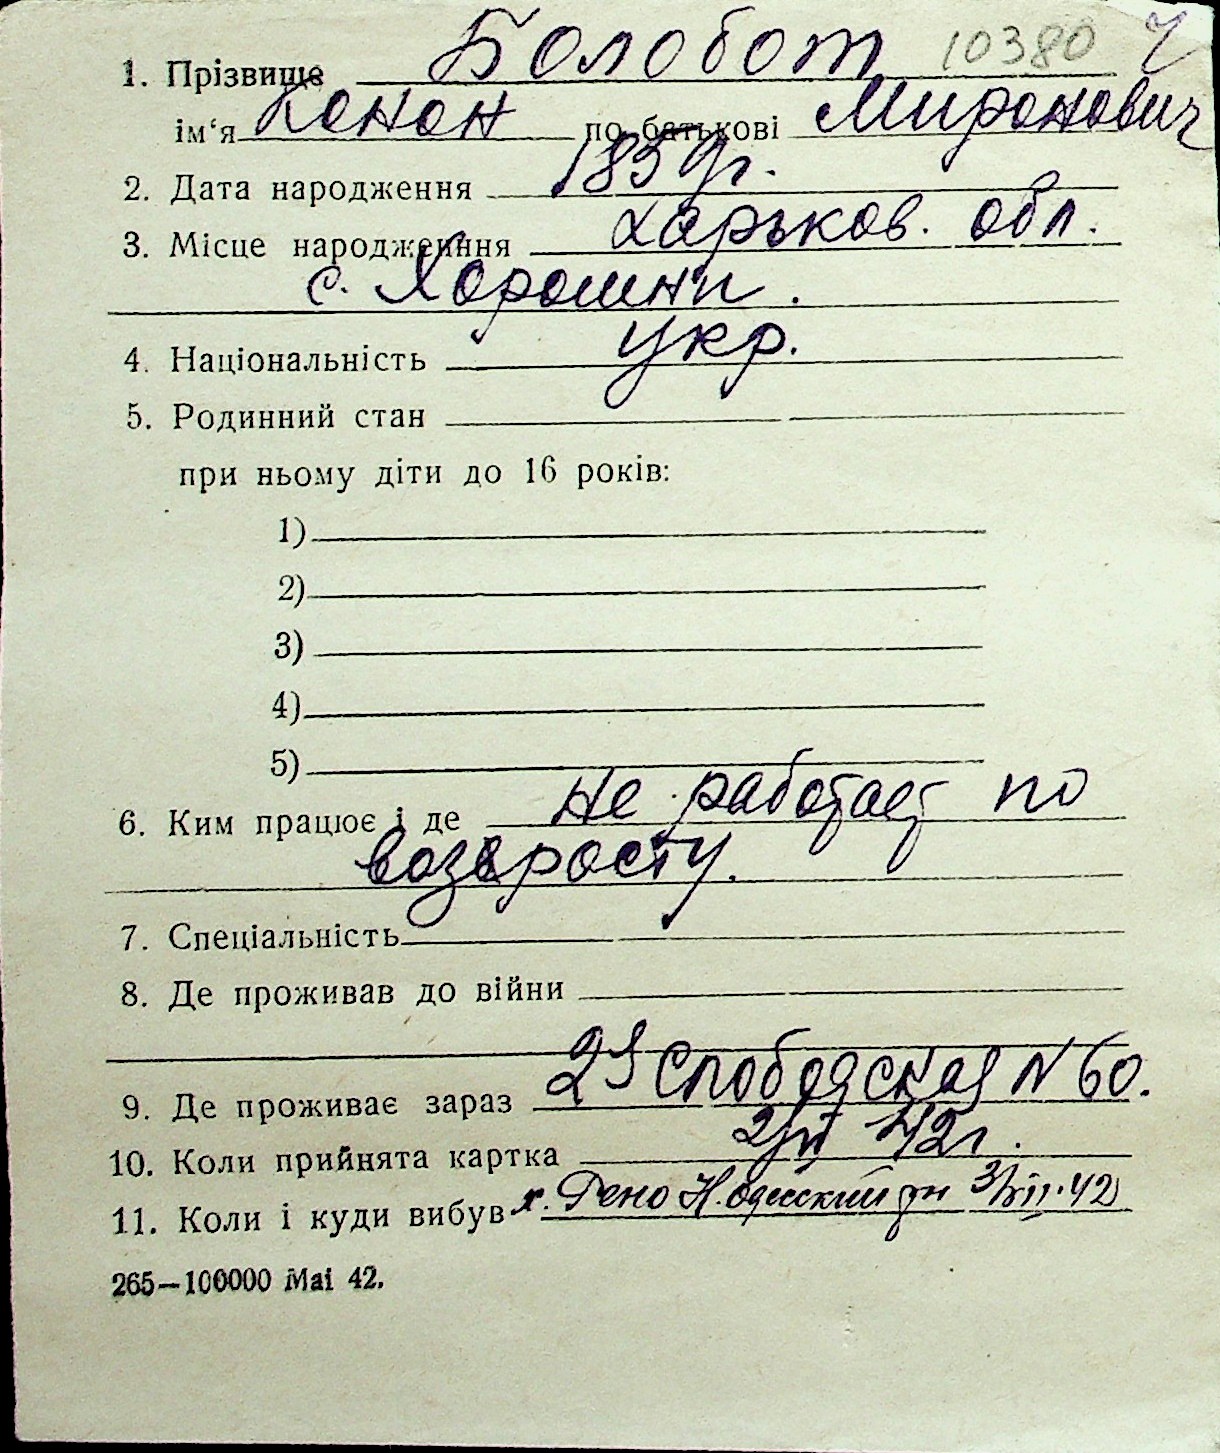 1. Прізвище Болобот 10380
ім‘я Конон по батькові Миронович
2. Дата народження 1859г.
3. Місце народженння Харьков. обл.
с. Хорошки.
4. Національність укр.
5. Родинний стан
при ньому діти до 16 років:
1)
2)
3)
4)
5)
6. Ким працює і де не работает по
возврасту.
7. Спеціальність
8. Де проживав до війни
9. Де проживає зараз 23 Слободская N 60.
10. Коли прийнята картка 42г.
11. Коли і куди вибув х. Рено Н. Одесский рн 3/VIII.42
265—100000 Mai 42.